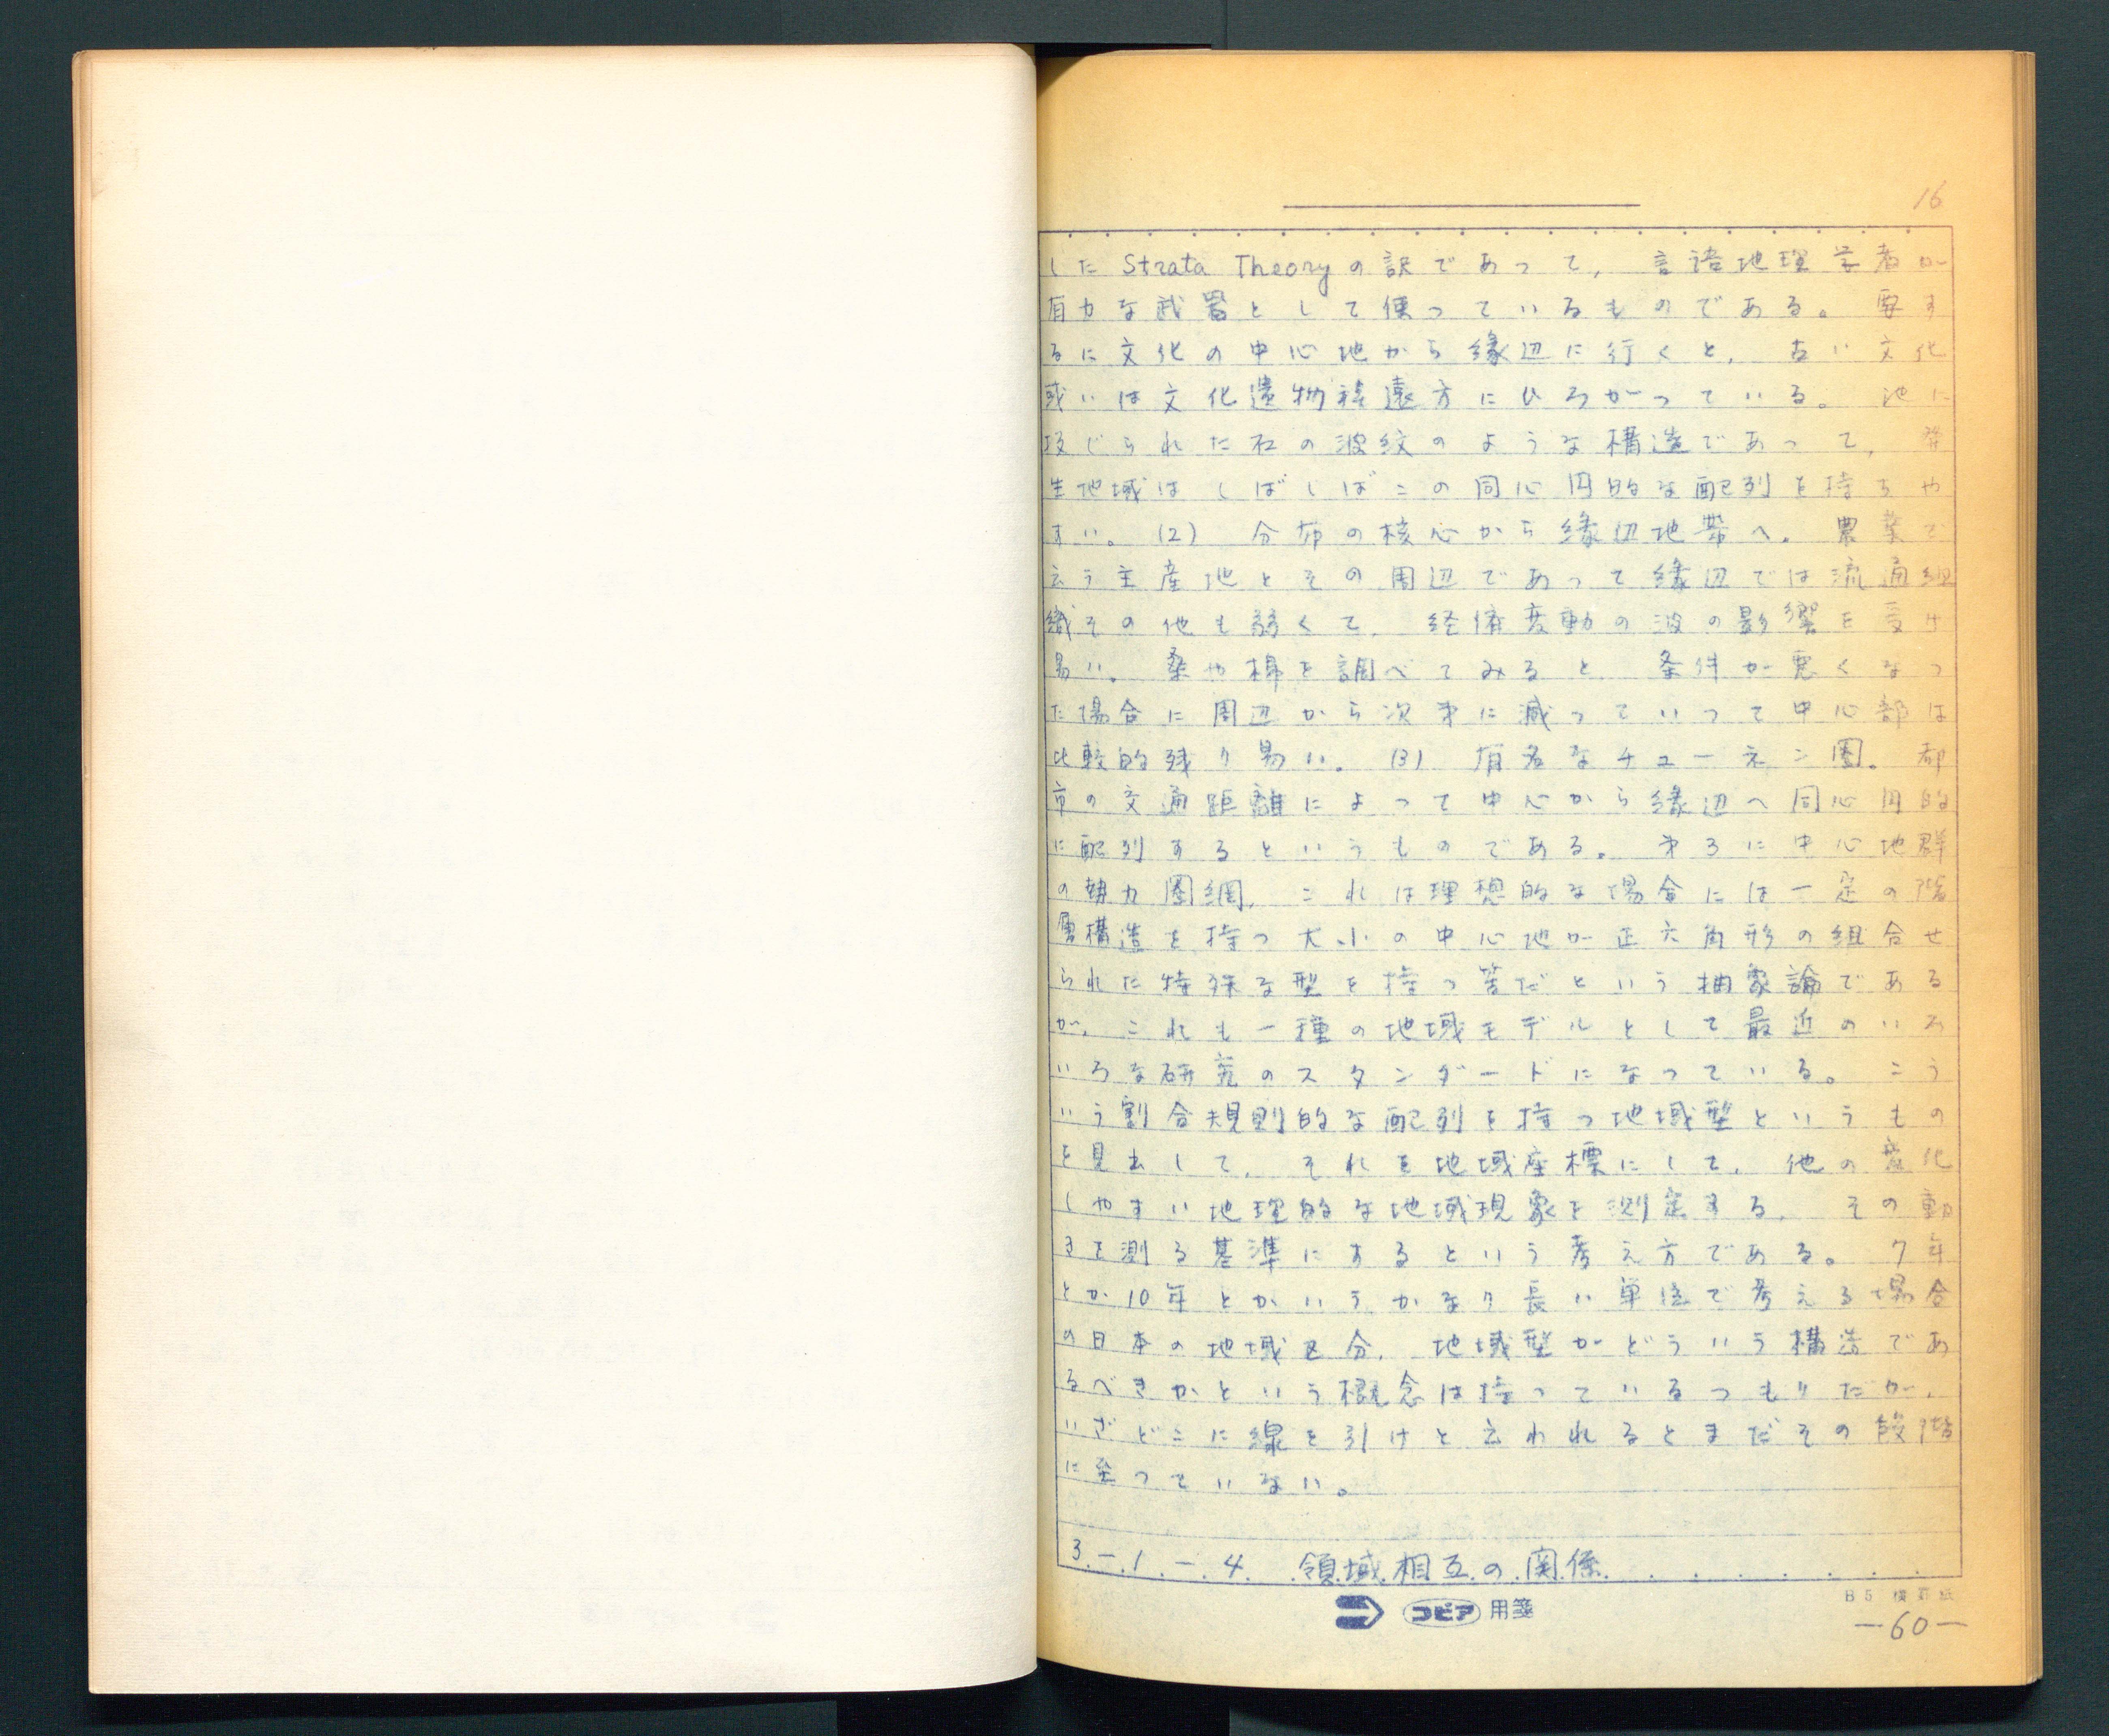 16
した Strata Theoryの訳であって,言語地理学者が
有力な武器として使っているものである。要す
るに文化の中心地から縁辺に行くと,古い文化
或いは文化遺物程遠方にひろがっている。池に
投じられた石の波紋のような構造であって,発
生地域はしばしばこの同心円的な配列を持ちや
すい。(2) 分布の核心から縁辺地帯へ。農業で
云う主産地とその周辺であって縁辺では流通組
織その他も弱くて,経済変動の波の影響を受け
易い。桑や棉を調べてみると 条件が悪くなっ
た場合に周辺から次才に減っていって中心部は
比較的残り易い。(3) 有名なチューネン圏。都
市の交通距離によって中心から縁辺へ同心円的
に配列するというものである。才3に中心地群
の勢力圏網,これは理想的な場合には一定の階
層構造を持つ大小の中心地が正六角形の組合せ
られた特殊な型を持つ筈だという抽象論である
が,これも一種の地域モデルとして最近のいろ
いろな研究のスタンダードになっている。こう
いう割合規則的な配列を持つ地域型というもの
を見出して,それを地域座標にして,他の変化
しやすい地理的な地域現象を測定する,その動
きを測る基準にするという考え方である。7年
とか10年とかいうかなり長い単位で考える場合
の日本の地域区分,地域型がどういう構造であ
るべきかという概念は持っているつもりだが,
いざどこに線を引けと云われるとまだその段階
に至っていない。
3-1-4 領域相互の関係
コピア 用箋
B5 横罫紙
—60—